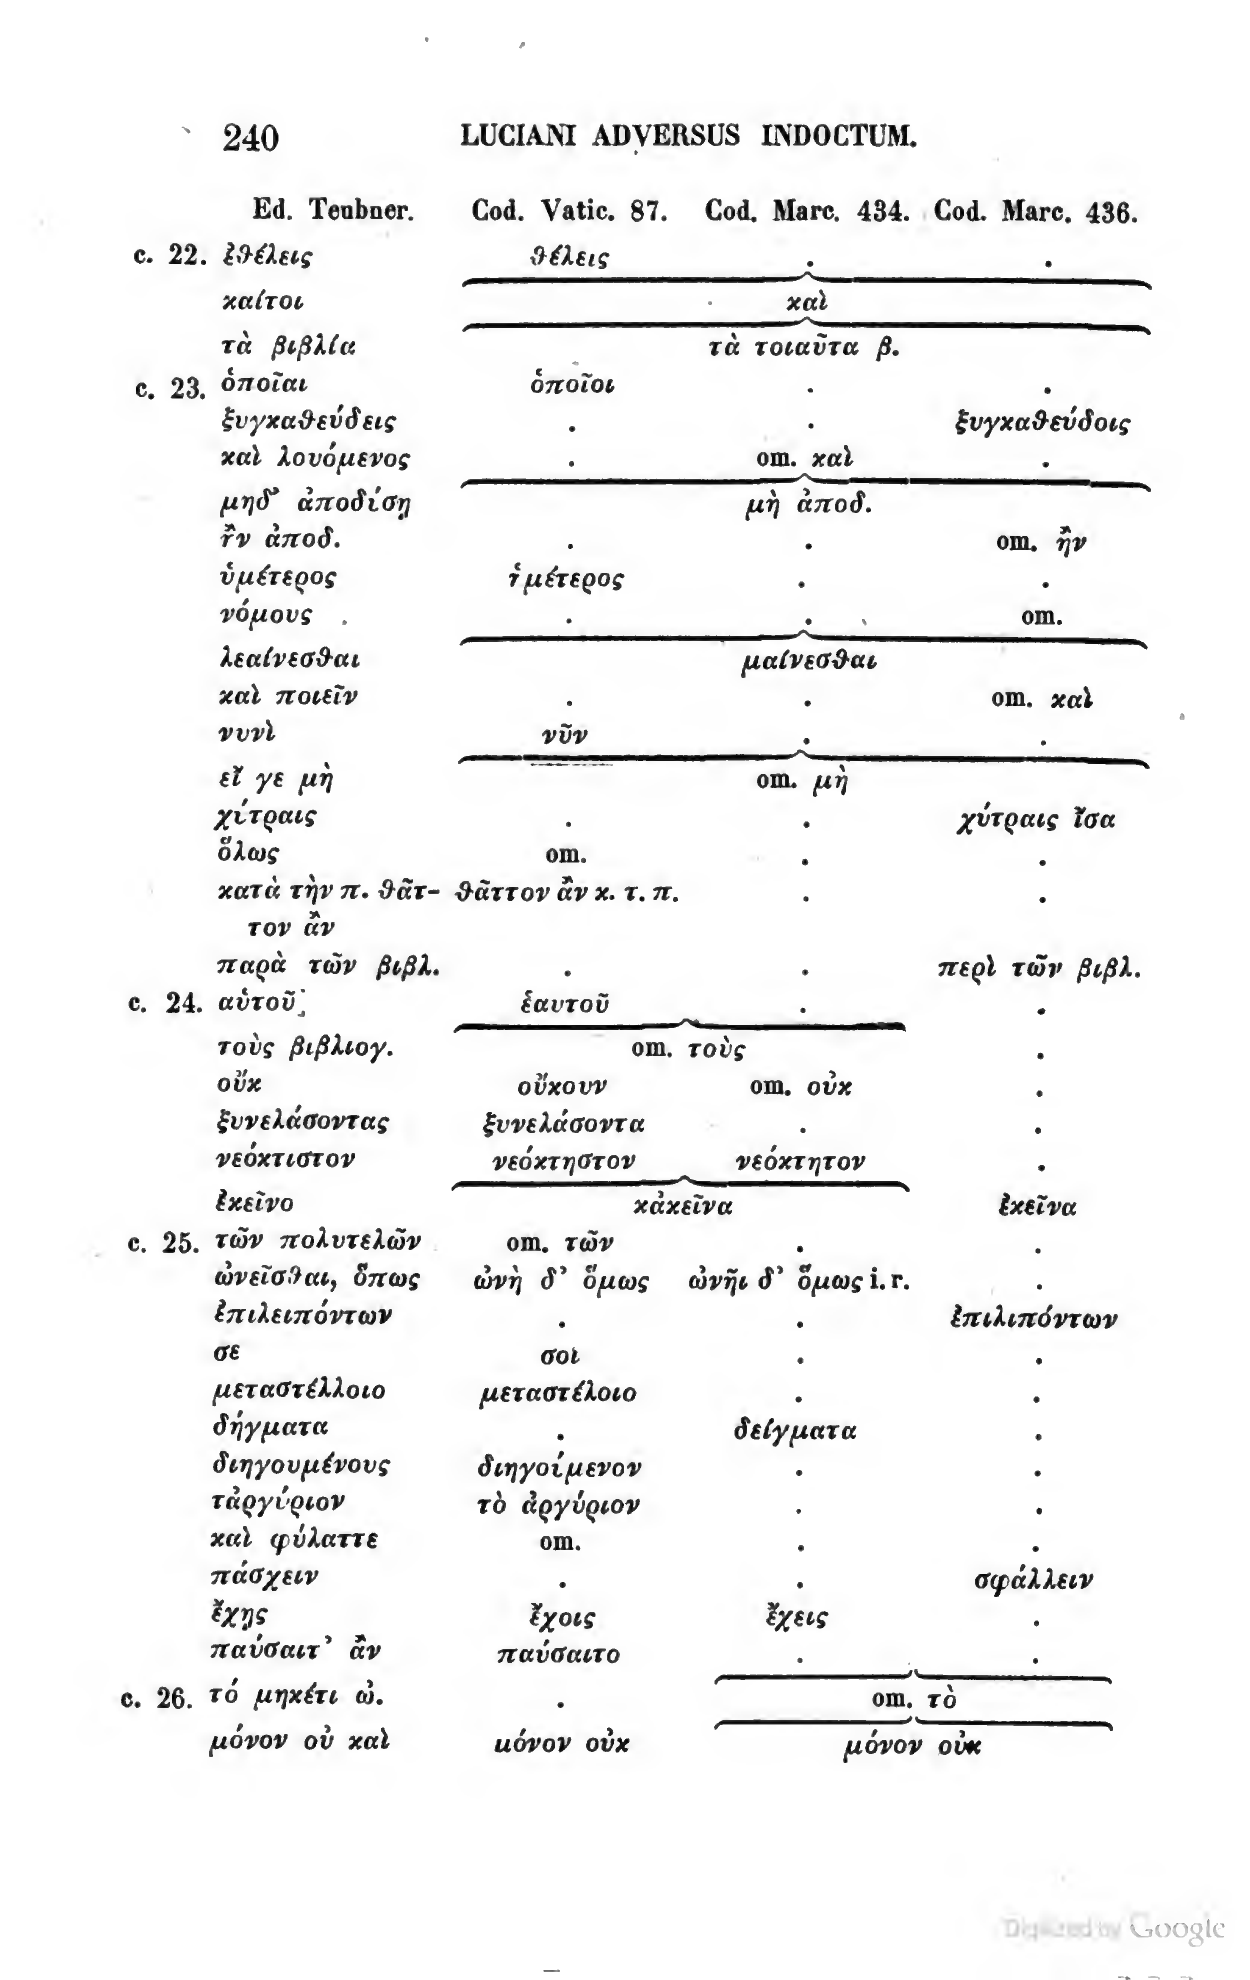 240 LUCIANI ADVERSUS INDOCTUM.
Ed. Teubner. Cod. Vatic. 87. Cod. Marc. 434. Cod. Marc. 436.
c. 22. ἐθέλεις θέλεις . .
καίτοι καὶ
τὰ βιβλία τὰ τοιαῦτα β.
c. 23. ὁποῖαι ὁποῖοι . .
ξυγκαθεύδεις . . ξυγκαθεύδοις
καὶ λουόμενος . om. καὶ .
μηδ' ἀποδύσῃ μὴ ἀποδ.
ἢν ἀποδ. . . om. ἢν
ὑμέτερος ἡμέτερος . .
νόμους . . om.
λεαίνεσθαι μαίνεσθαι
καὶ ποιεῖν . . om. καὶ
νυνὶ νῦν . .
εἴ γε μὴ om. μὴ
χύτραις . . χύτραις ἴσα
ὅλως om. . .
κατὰ τὴν π. θᾶτ- θᾶττον ἂν κ. τ. π. . .
τον ἂν
παρὰ τῶν βιβλ. . . περὶ τῶν βιβλ.
c. 24. αὑτοῦ; ἑαυτοῦ . .
τοὺς βιβλιογ. om. τοὺς .
οὔκ οὔκουν om. οὐκ .
ξυνελάσοντας ξυνελάσοντα . .
νεόκτιστον νεόκτηστον νεόκτητον .
ἐκεῖνο κἀκεῖνα ἐκεῖνα
c. 25. τῶν πολυτελῶν om. τῶν . .
ὠνεῖσθαι, ὅπως ὠνὴ δ' ὅμως ὠνῆι δ' ὅμως i. r. .
ἐπιλειπόντων . . ἐπιλιπόντων
σε σοι . .
μεταστέλλοιο μεταστέλοιο . .
δήγματα . δείγματα .
διηγουμένους διηγούμενον . .
τἀργύριον τὸ ἀργύριον . .
καὶ φύλαττε om. . .
πάσχειν . . σφάλλειν
ἔχῃς ἔχοις ἔχεις .
παύσαιτ' ἂν παύσαιτο . .
c. 26. τό μηκέτι ὠ. . om. τὸ
μόνον οὐ καὶ μόνον οὐκ μόνον οὐκ
Digitized by Google